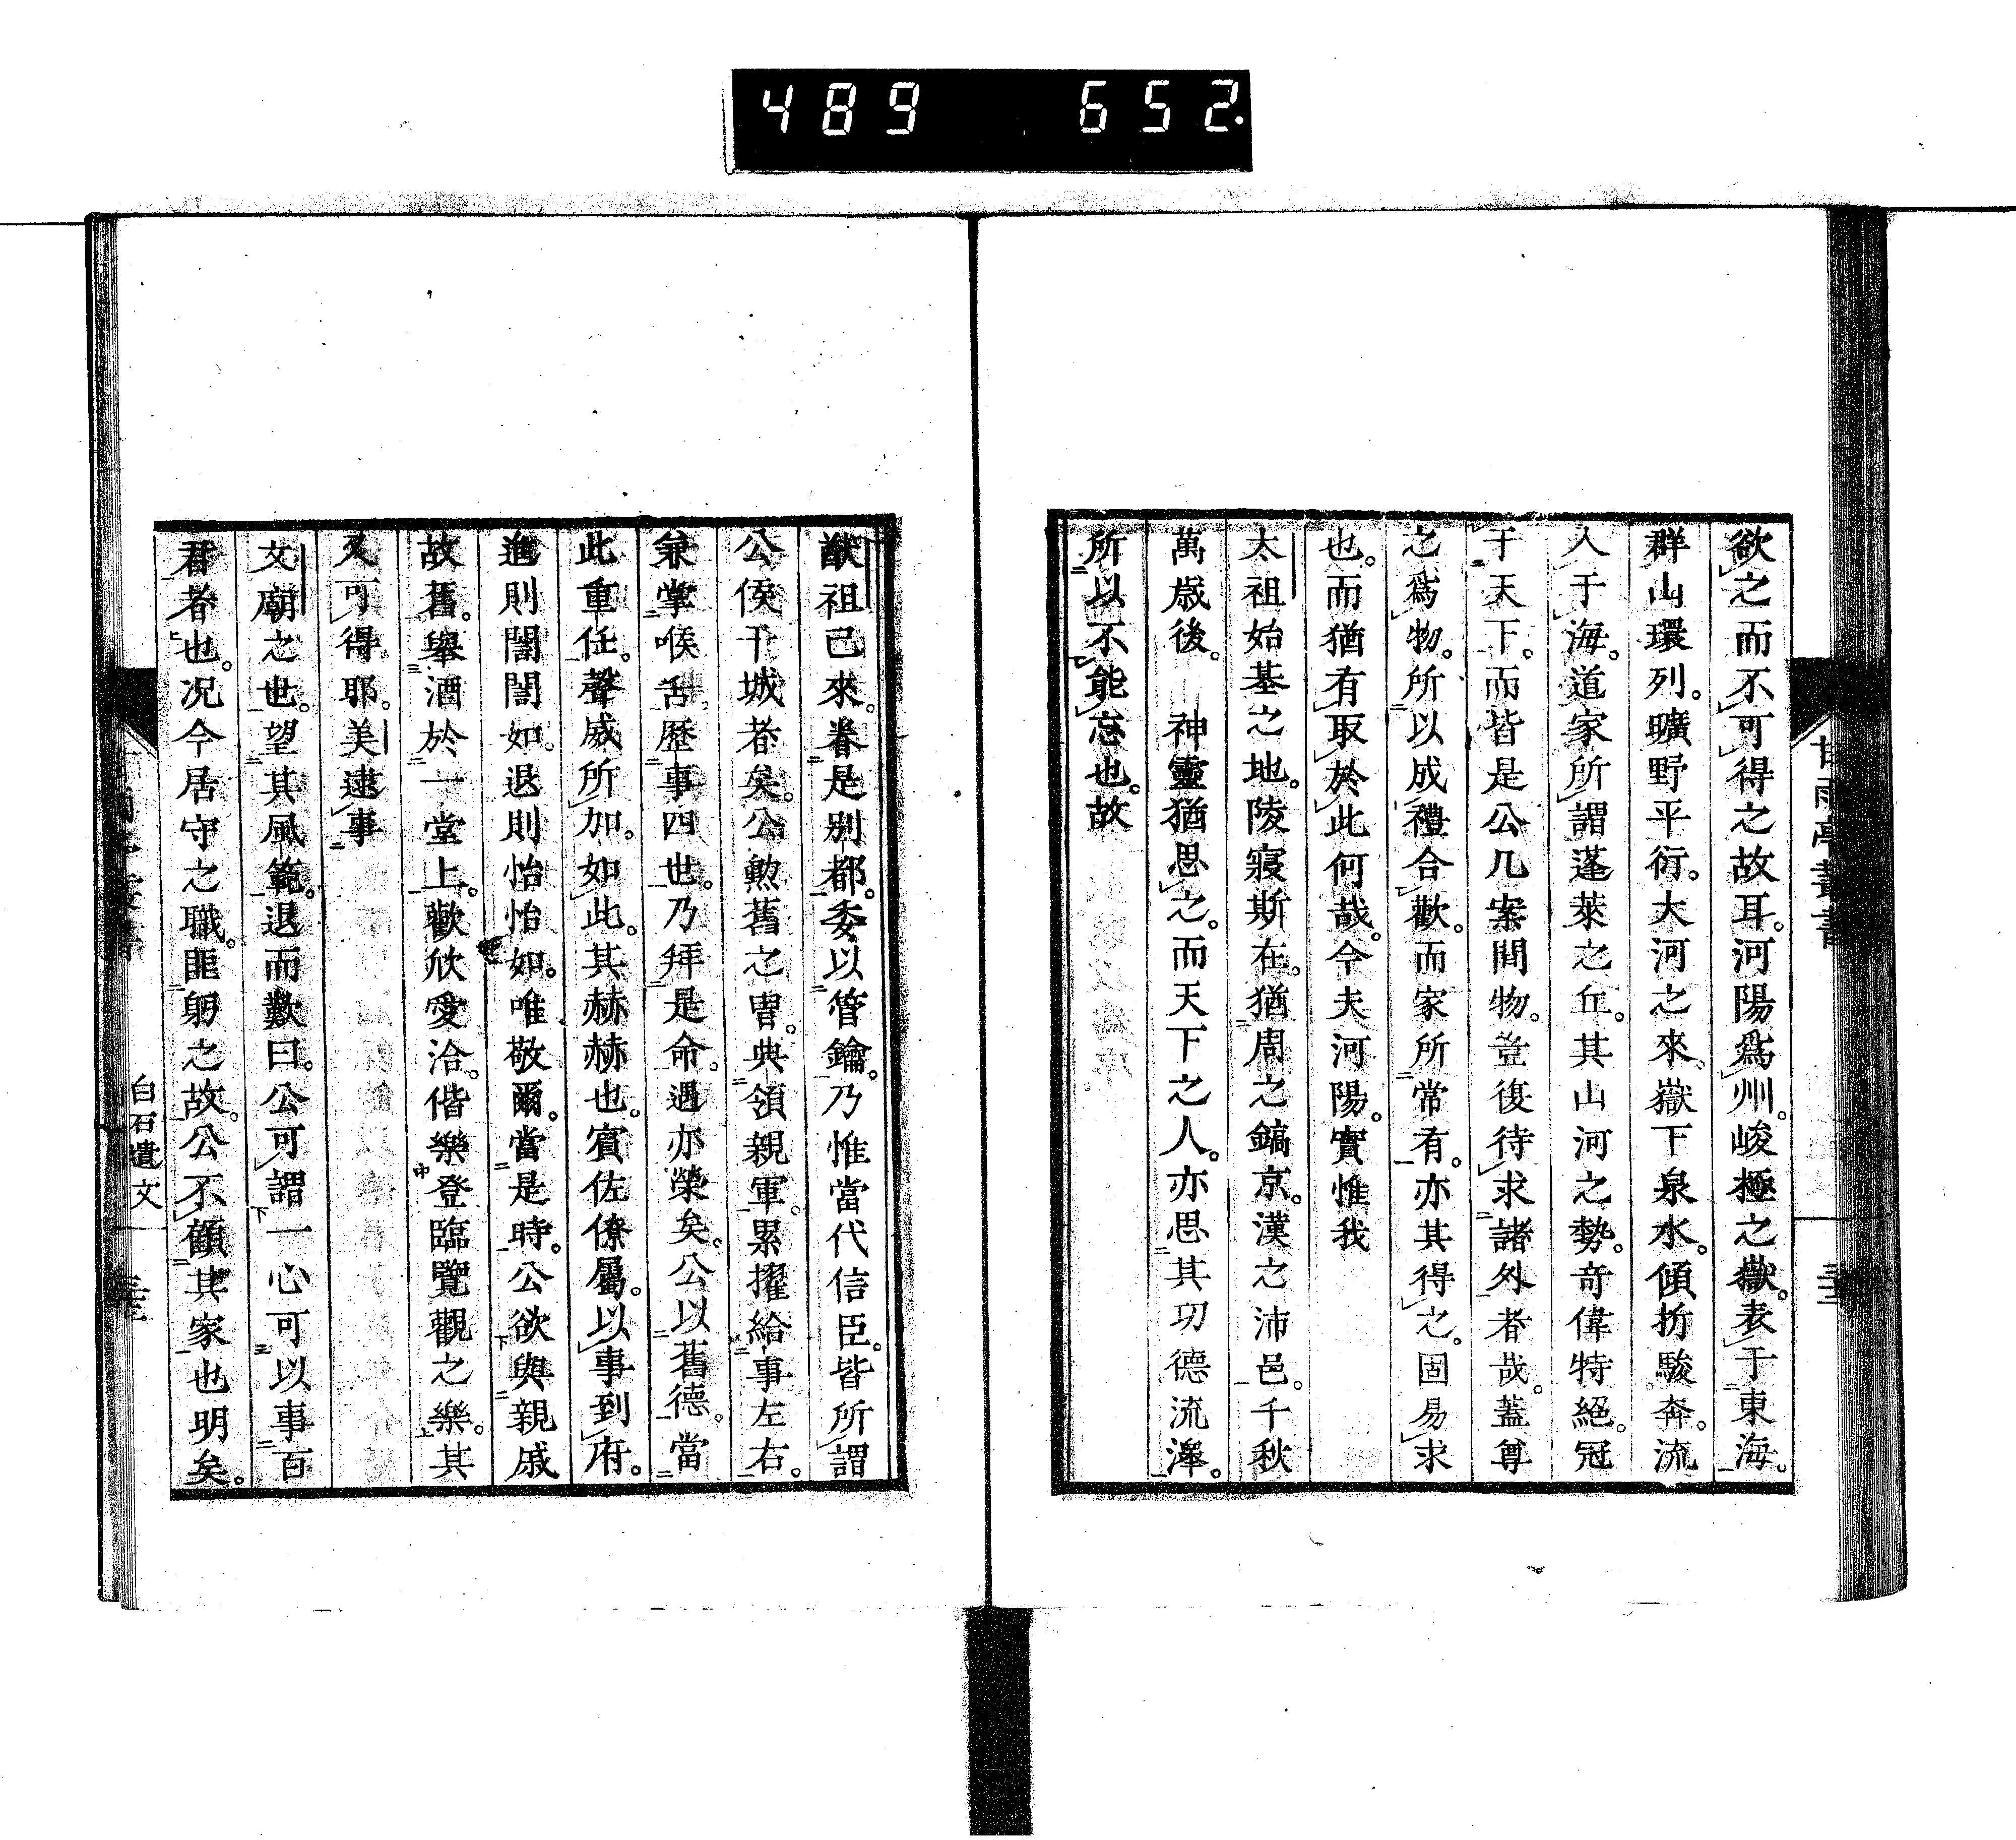 489 652.
欲之而不可得之故耳。河陽爲州。峻極之嶽。表于東海。
群山環列。曠野平衍。大河之來。嶽下泉水。傾折駿奔。流
入于海。道家所謂蓬萊之丘。其山河之勢。奇偉特絕。冠
于天下。而皆是公几案間物。豈復待求諸外者哉。蓋尊
之爲物。所以成禮合歡。而家所常有。亦其得之。固易求
也。而猶有取於此何哉。今夫河陽。實惟我
太祖始基之地。陵寢斯在。猶周之鎬京。漢之沛邑。千秋
萬歲後。神靈猶思之。而天下之人。亦思其功德流澤。
所以不能忘也。故
猷祖已來。眷是別都。委以管鑰。乃惟當代信臣。皆所謂
公侯干城者矣。公勲舊之冑。典領親軍。累擢給事左右。
兼掌喉舌歷事四世。乃拜是命。遇亦榮矣。公以舊德。當
此重任。聲威所加。如此。其赫赫也。賓佐僚屬。以事到府。
進則誾誾如。退則怡怡如。唯敬爾。當是時。公欲與親戚
故舊。舉酒於一堂上。歡欣愛洽。偕樂登臨覽觀之樂。其
又可得耶。美逮事
文廟之世。望其風範。退而歎曰。公可謂一心可以事百
君者也。況今居守之職。匪躬之故。公不顧其家也明矣。
白石遺文